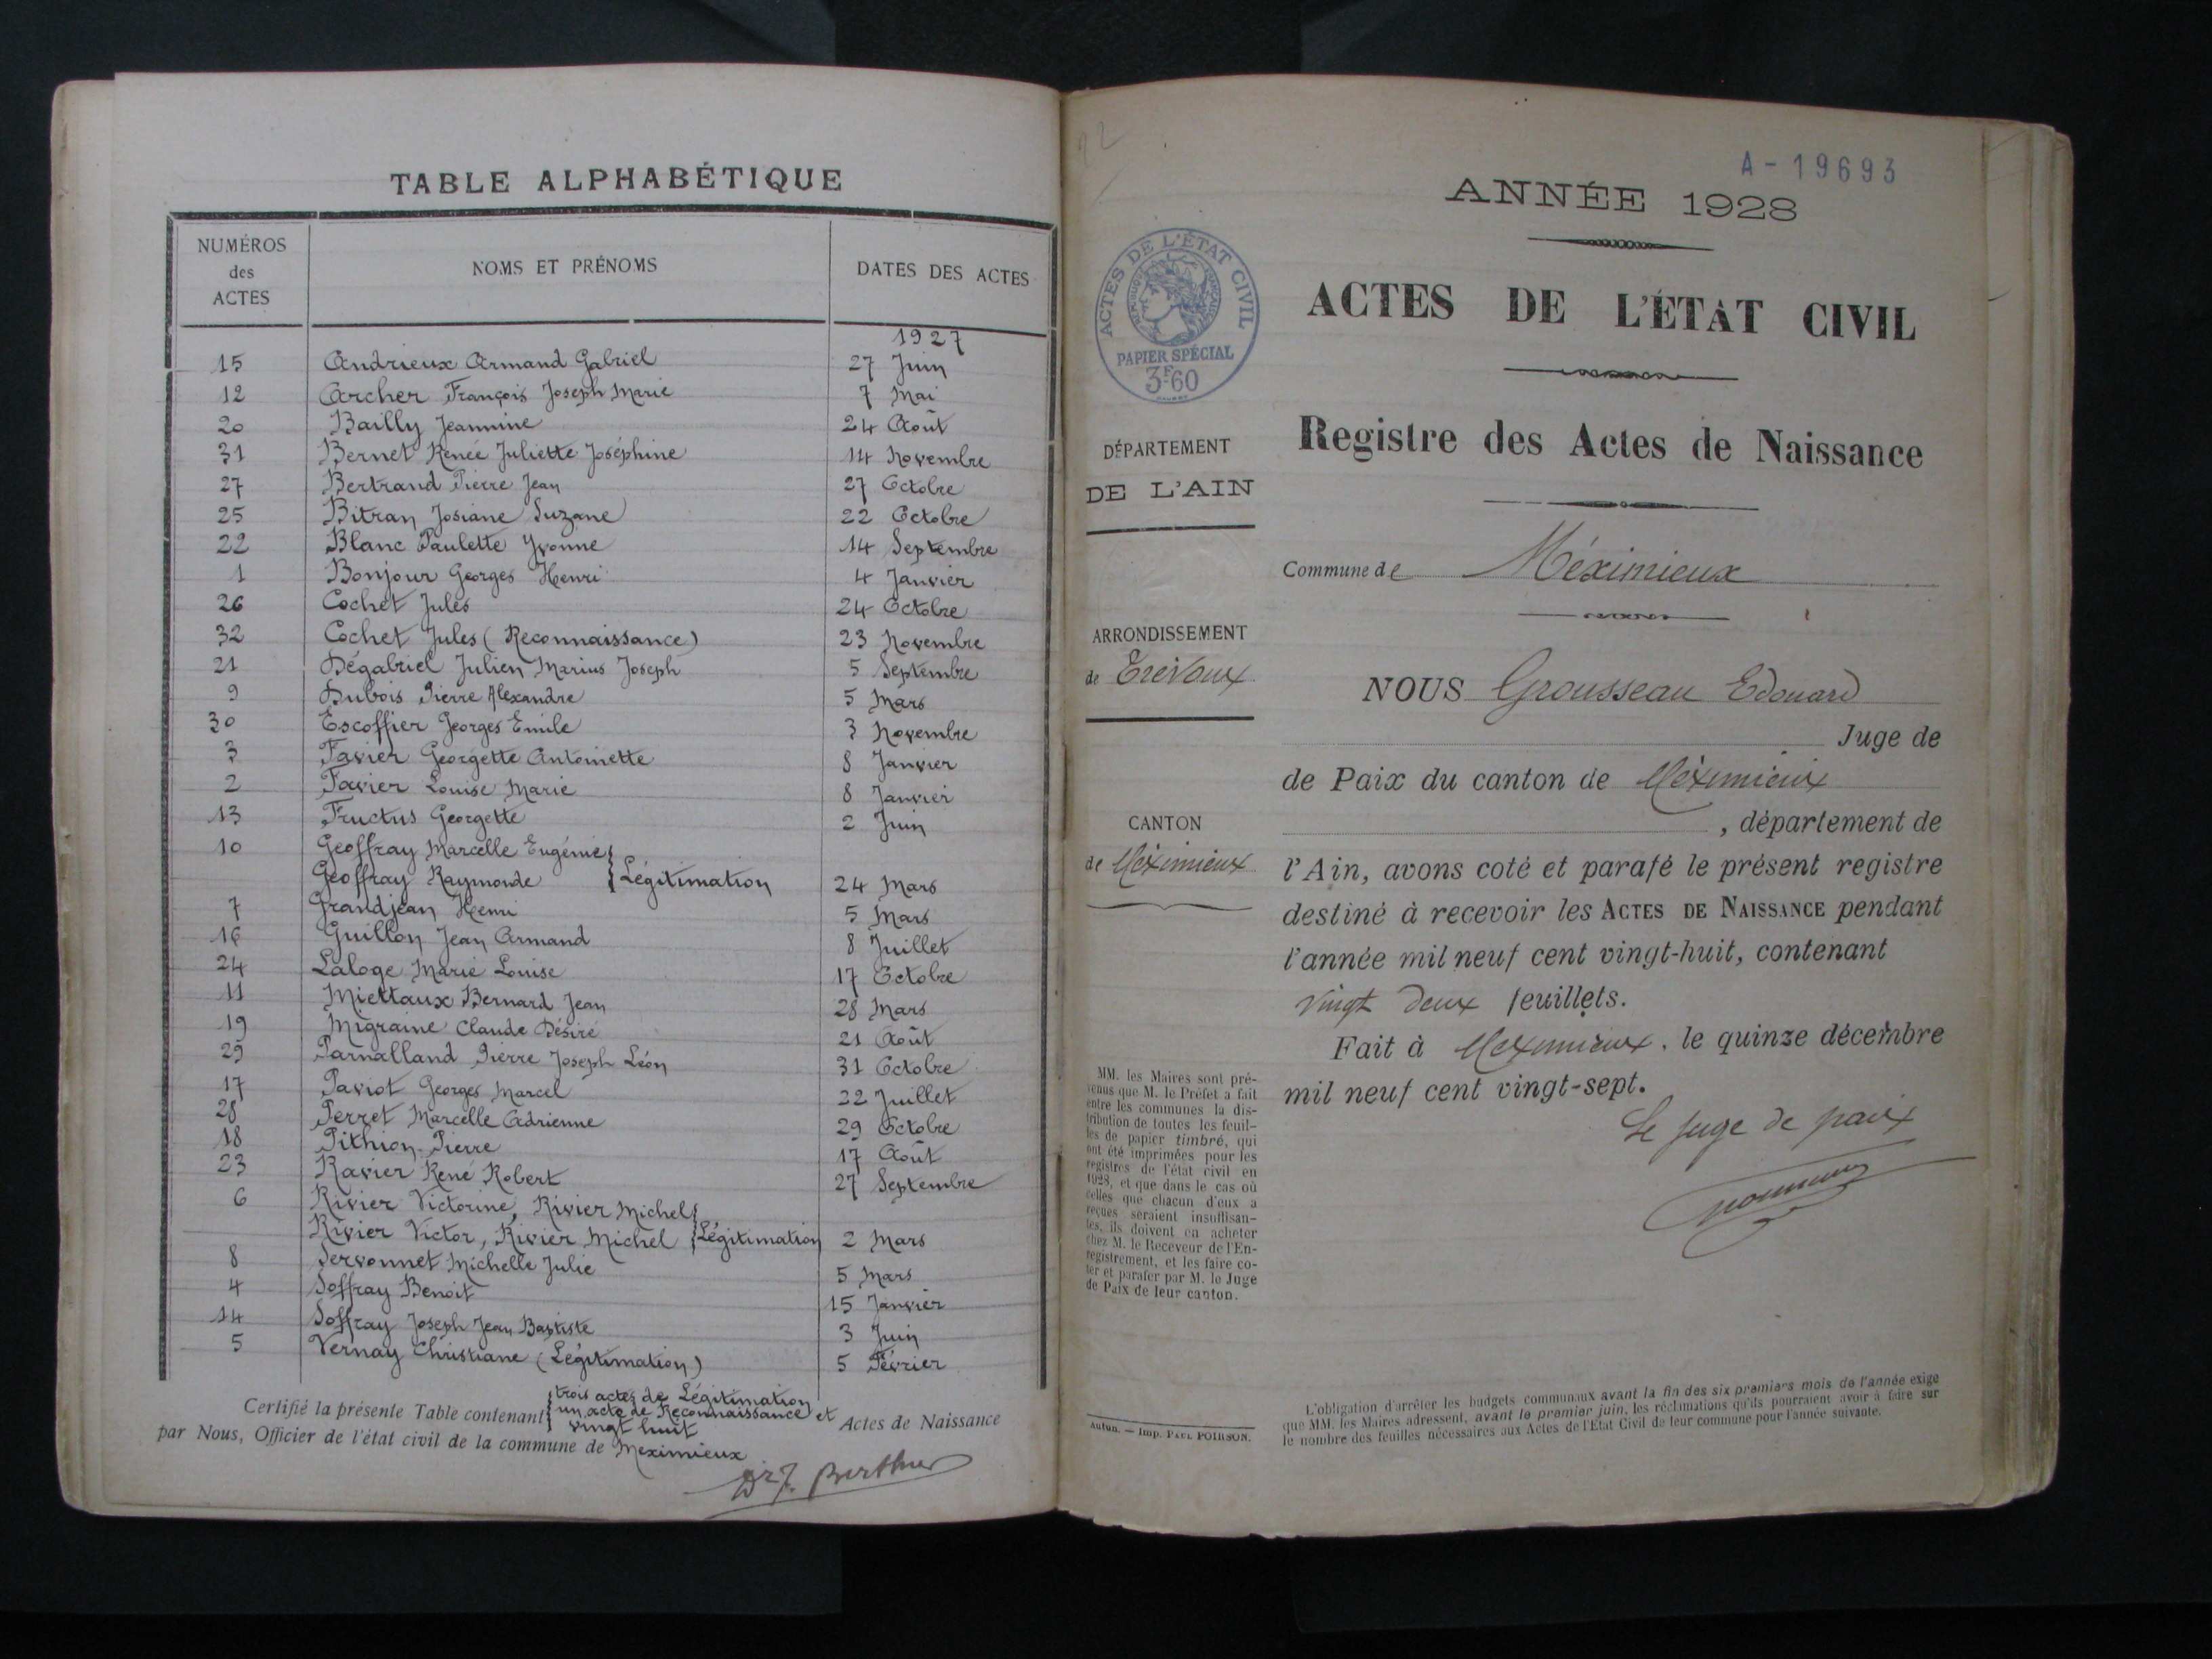 TABLE ALPHABÉTIQUE
NUMÉROS des ACTES | NOMS ET PRÉNOMS | DATES DES ACTES
1927
15 Andrieux Armand Gabriel 27 Juin
12 Archer François Joseph Marie 7 Mai
20 Bailly Jeannine 24 Août
31 Bernet Renée Juliette Joséphine 14 Novembre
27 Bertrand Pierre Jean 27 Octobre
25 Bitran Josiane Suzane 22 Octobre
22 Blanc Paulette Yvonne 14 Septembre
1 Bonjour Georges Henri 4 Janvier
26 Cochet Jules 24 Octobre
32 Cochet Jules (Reconnaissance) 23 Novembre
21 Dégabriel Julien Marius Joseph 5 Septembre
9 Dubois Pierre Alexandre 5 Mars
30 Escoffier Georges Emile 3 Novembre
3 Favier Georgette Antoinette 8 Janvier
2 Favier Louise Marie 8 Janvier
13 Fructus Georgette 2 Juin
10 Geoffray Marcelle Eugénie
Geoffray Raymonde } Légitimation 24 Mars
7 Grandjean Henri 5 Mars
16 Guillon Jean Armand 8 Juillet
24 Laloge Marie Louise 17 Octobre
11 Miettaux Bernard Jean 28 Mars
19 Migraine Claude Désiré 21 Août
29 Parnalland Pierre Joseph Léon 31 Octobre
17 Paviot Georges Marcel 22 Juillet
28 Perret Marcelle Adrienne 29 Octobre
18 Pithion Pierre 17 Août
23 Ravier René Robert 27 Septembre
6 Rivier Victorine, Rivier Michel
Rivier Victor, Rivier Michel } Légitimation 2 Mars
8 Servonnet Michelle Julie 5 Mars
4 Soffray Benoit 15 Janvier
14 Soffray Joseph Jean Baptiste 3 Juin
5 Vernay Christiane (Légitimation) 5 Février
trois actes de Légitimation
un acte de Reconnaissance et
Certifié la présente Table contenant vingt huit Actes de Naissance
par Nous, Officier de l'état civil de la commune de Meximieux
Dr J. Berthier
A-19693
ANNÉE 1928
ACTES DE L'ÉTAT CIVIL
RÉPUBLIQUE FRANÇAISE
PAPIER SPÉCIAL
3F60
ACTES DE L'ÉTAT CIVIL
Registre des Actes de Naissance
DÉPARTEMENT
DE L'AIN
Commune de Méximieux
ARRONDISSEMENT
de Trévoux
NOUS Grousseau Edouard
Juge de
de Paix du canton de Méximieux
CANTON
de Méximieux
, département de
l'Ain, avons coté et parafé le présent registre
destiné à recevoir les ACTES DE NAISSANCE pendant
l'année mil neuf cent vingt-huit, contenant
vingt deux feuillets.
Fait à Meximieux, le quinze décembre
mil neuf cent vingt-sept.
Le Juge de paix
MM. les Maires sont pré-
venus que M. le Préfet a fait
entre les communes la dis-
tribution de toutes les feuil-
les de papier timbré, qui
ont été imprimées pour les
registres de l'état civil en
1928, et que dans le cas où
celles que chacun d'eux a
reçues seraient insuffisan-
tes, ils doivent en acheter
chez M. le Receveur de l'En-
registrement, et les faire co-
ter et parafer par M. le Juge
de Paix de leur canton.
Autun. — Imp. PAUL POIRSON.
L'obligation d'arrêter les budgets communaux avant la fin des six premiers mois de l'année exige
que MM. les Maires adressent, avant le premier juin, les réclamations qu'ils pourraient avoir à faire sur
le nombre des feuilles nécessaires aux Actes de l'Etat Civil de leur commune pour l'année suivante.